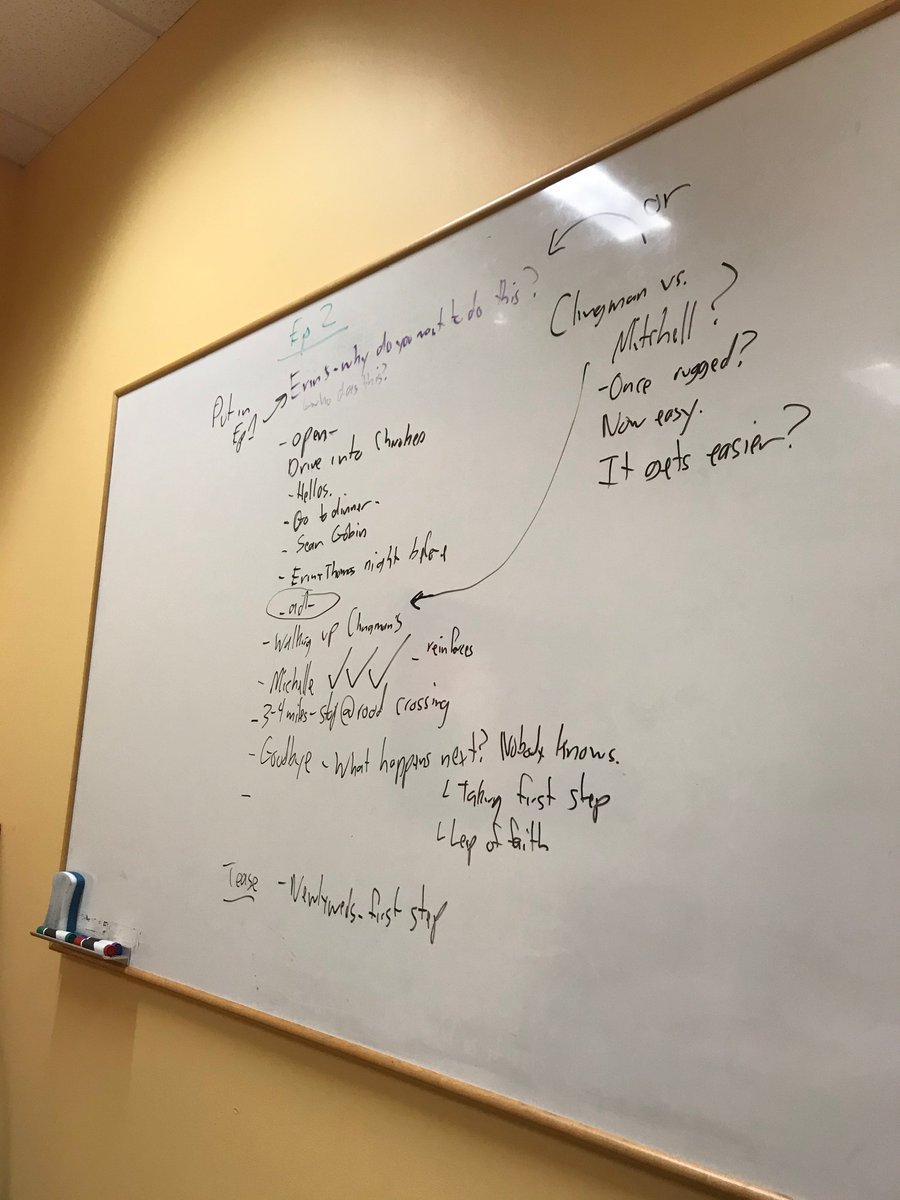 Ep 2
Erin's - why do you want to do this?
who does this?
Put in
Ep 1
- open -
Drive into Churches
- Hellos.
- Go to dinner -
- Sean Gobin
- Erin + Thomas night before
- ad -
- Walking up Clingman's
- Michelle
- reinforces
- 3-4 miles - stop @ road crossing
- Goodbye - What happens next? Nobody knows.
Taking first step
Leap of faith
-
Tease - Newlyweds - first step
or
Clingman vs.
Mitchell?
- Once rugged?
Now easy.
It gets easier?